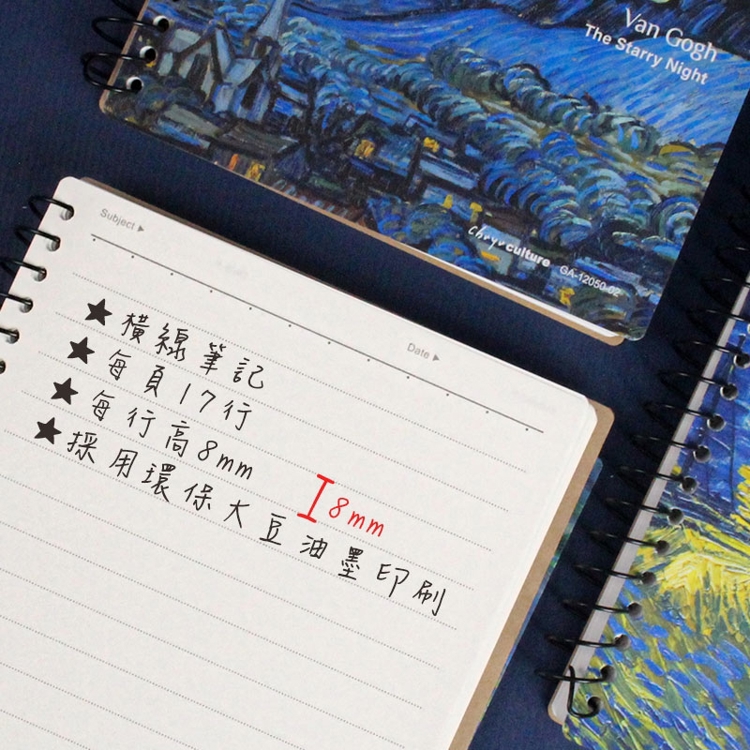 Van Gogh
The Starry Night
culture GA-12050-02
Subject ▶
Date ▶
★ 橫線筆記
★ 每頁17行
★ 每行高8mm
8mm
★ 採用環保大豆油墨印刷